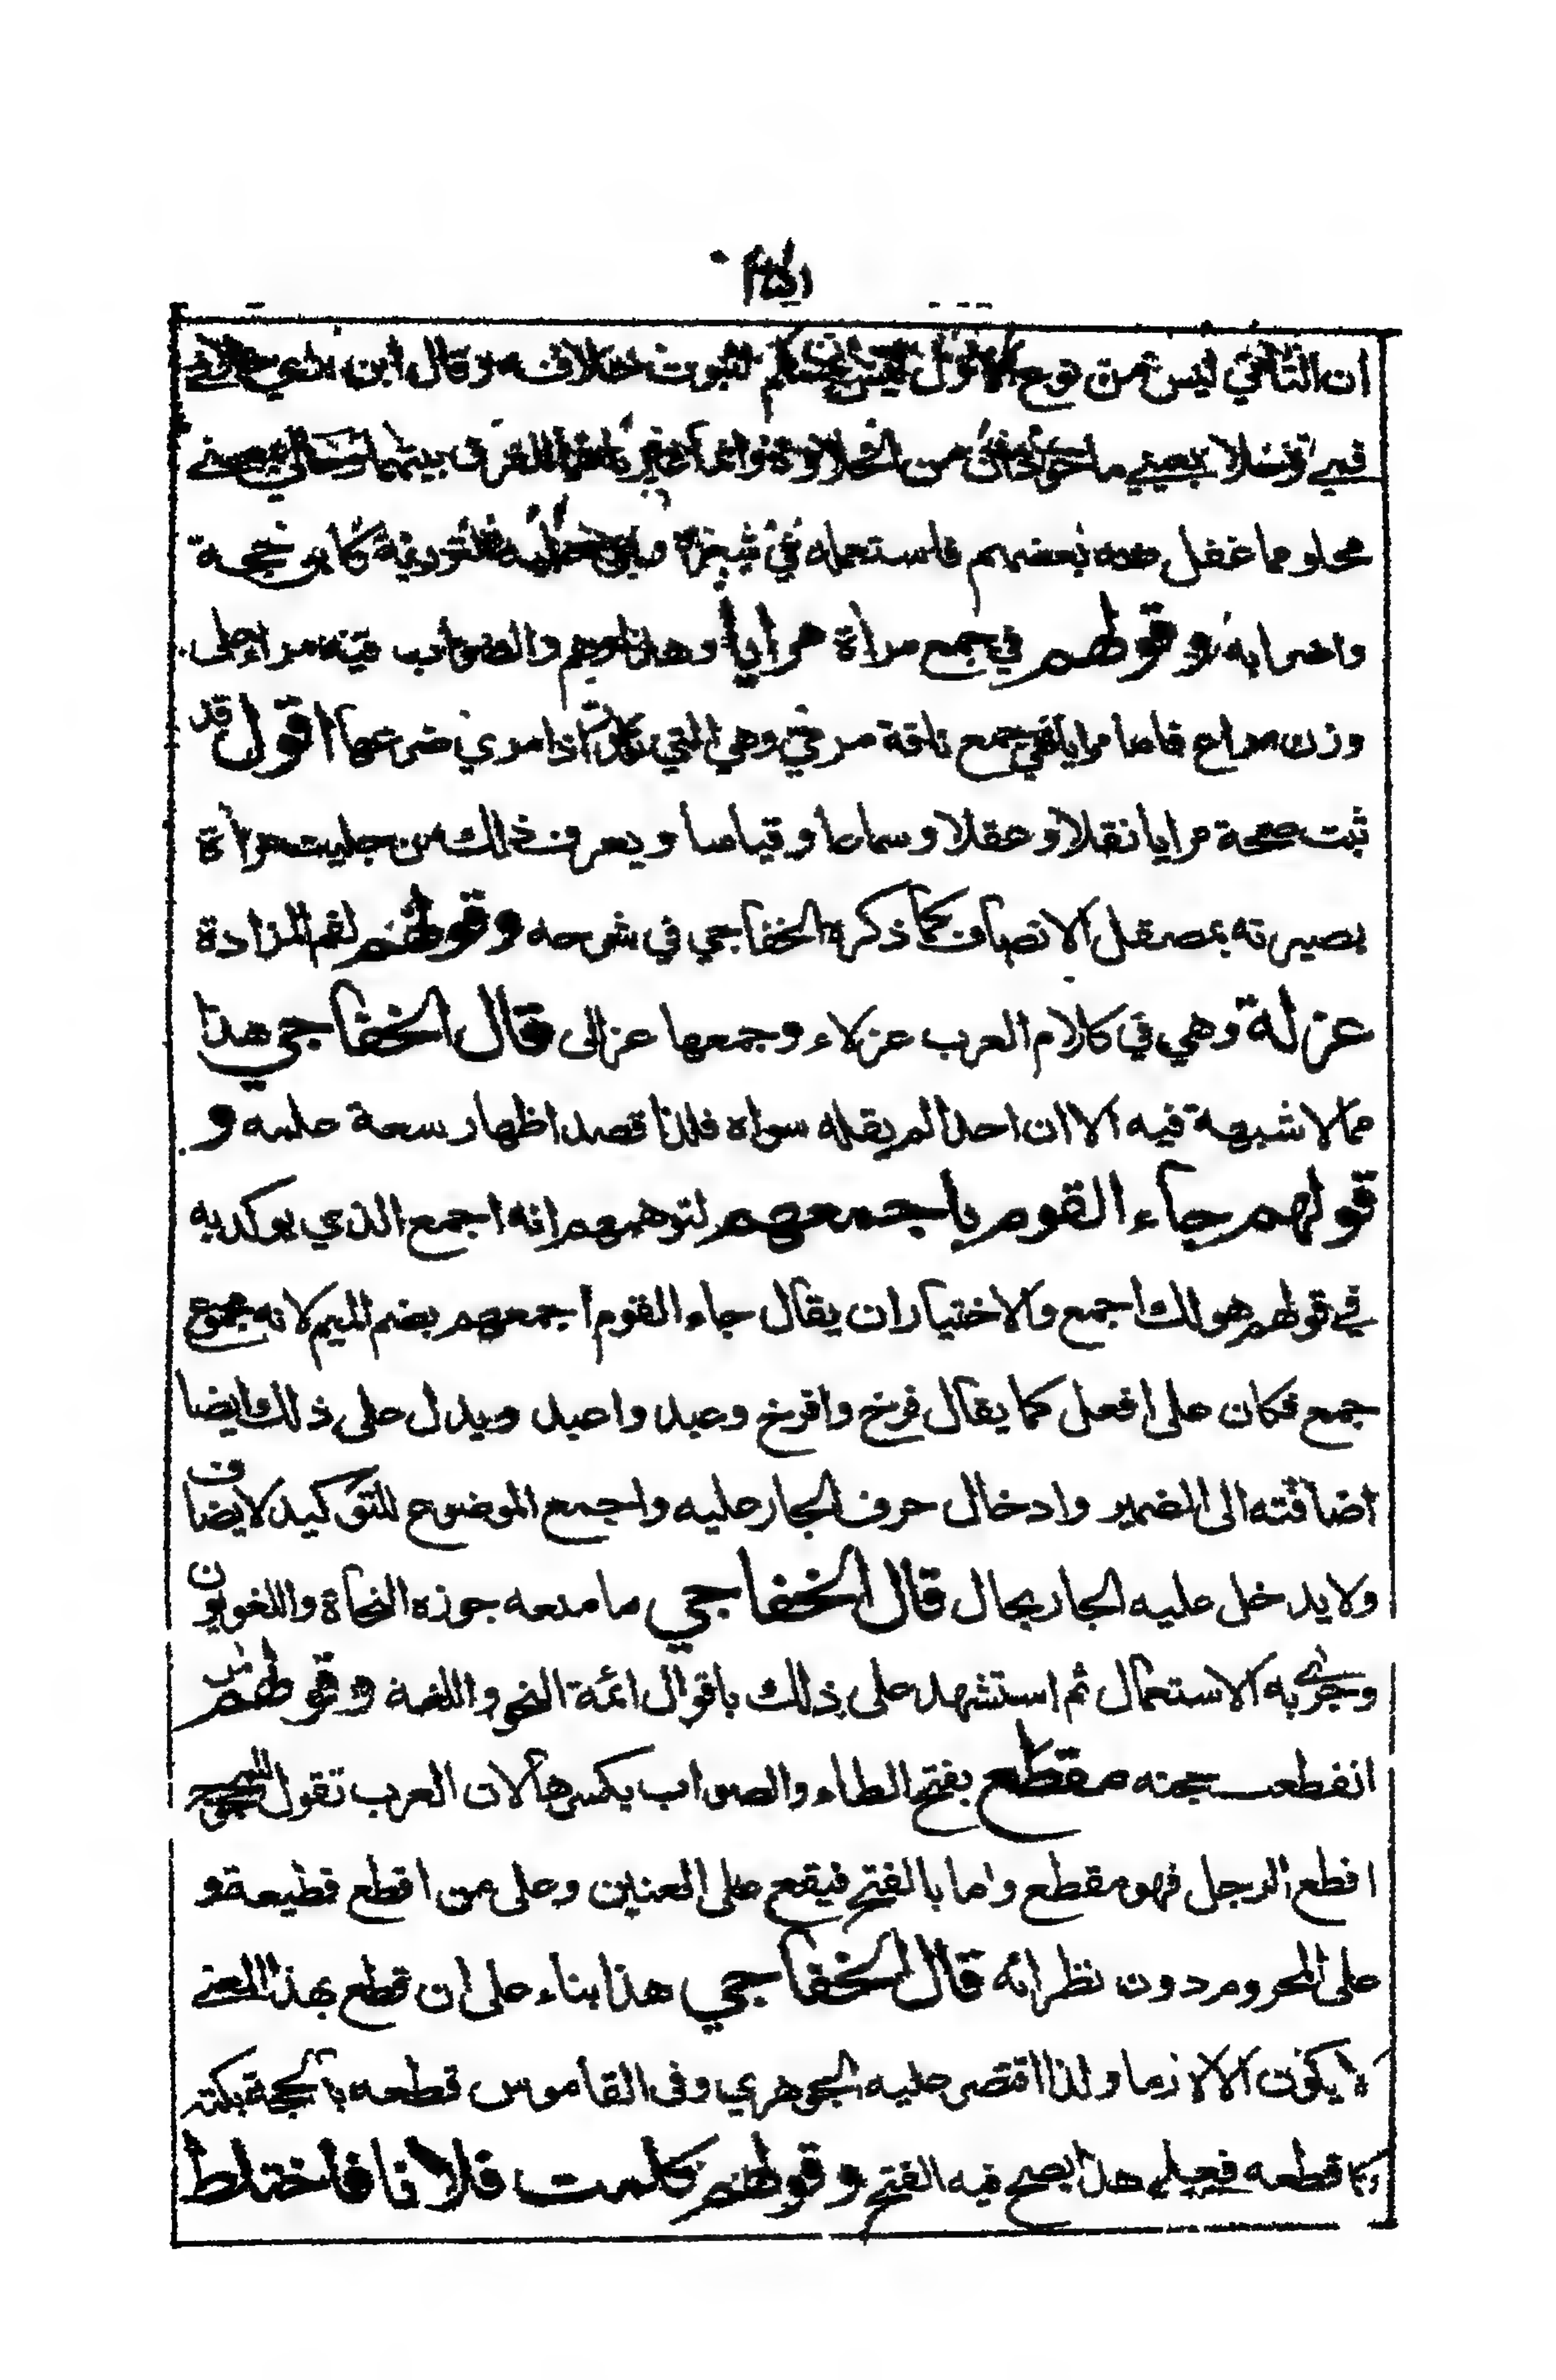 ان الثاني ليس من نوح الاول ليس بمسلم لثبوت خلافه وقال ابن
محلو مما غفل عنه بعضهم فاستعمله في
واضرابه وقولهم في جمع مرأة مرايا وهذا وهم والصواب فيه مراء على
وزن مراع فاما مرايا فهي جمع ناقة مري وهي التي تدر اذا مري ضرعها اقول قد
ثبت صحة مرايا نقلا وعقلا وسماعا وقياسا ويعرف ذلك من جليت مرأة
بصيرته بمصقل الانصاف كما ذكره الخفاجي في شرحه وقولهم لفم المزادة
عزلة وهي في كلام العرب عزلاء وجمعها عزالى قال الخفاجي هذا
مما لا شبهة فيه الا ان احدا لم يقله سواه فلذا قصد اظهار سعة علمه و
قولهم جاء القوم باجمعهم لتوهمهم انه اجمع الذي يوكد به
في قولهم هو لك اجمع والاختيار ان يقال جاء القوم اجمعهم بضم الميم لانه مجموع
جمع فكان على افعل كما يقال فرخ وافرخ وعبد واعبد ويدل على ذلك ايضا
اضافته الى الضمير وادخال حرف الجار عليه واجمع الموضوع للتوكيد لا يضاف
ولا يدخل عليه الجار بحال قال الخفاجي ما منعه جوزه النحاة واللغويون
وجرى به الاستعمال ثم استشهد على ذلك باقوال ائمة النحو واللغة وقولهم لمن
انقطعت حجته مقطع بفتح الطاء والصواب بكسرها لان العرب تقول للمحجوج
اقطع الرجل فهو مقطع واما بالفتح فيقع على العنين وعلى من اقطع قطيعة و
على المحروم دون نظرائه قال الخفاجي هذا بناء على ان قطع بهذا المعنى
لا يكون الا لازما ولذا اقتصر عليه الجوهري وفى القاموس قطعه بالحجة بكته
كاقطعه فعلى هذا يصح فيه الفتح وقولهم كلمت فلانا فاختلط